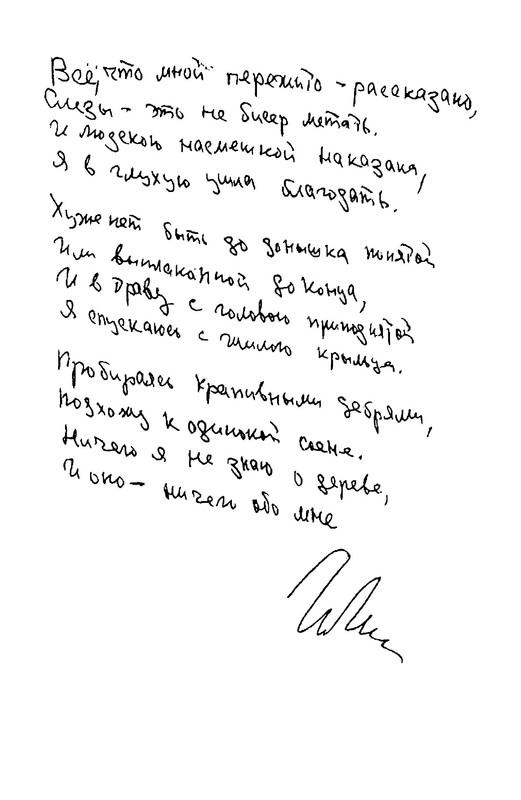 Всё, что мной пережито – рассказано,
Слезы – это не бисер метать.
И людскою насмешкой наказана,
Я в глухую ушла благодать.
Хуже нет быть до донышка понятой
Или выплаканной до конца,
И в траву с головою приподнятой
Я спускаюсь с гнилого крыльца.
Пробираясь крапивными дебрями,
Подхожу к одинокой сосне.
Ничего я не знаю о дереве,
И оно – ничего обо мне